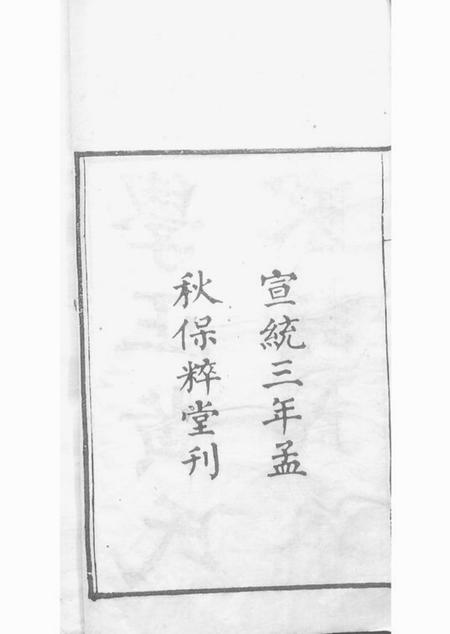 宣統三年孟
秋保粹堂刊